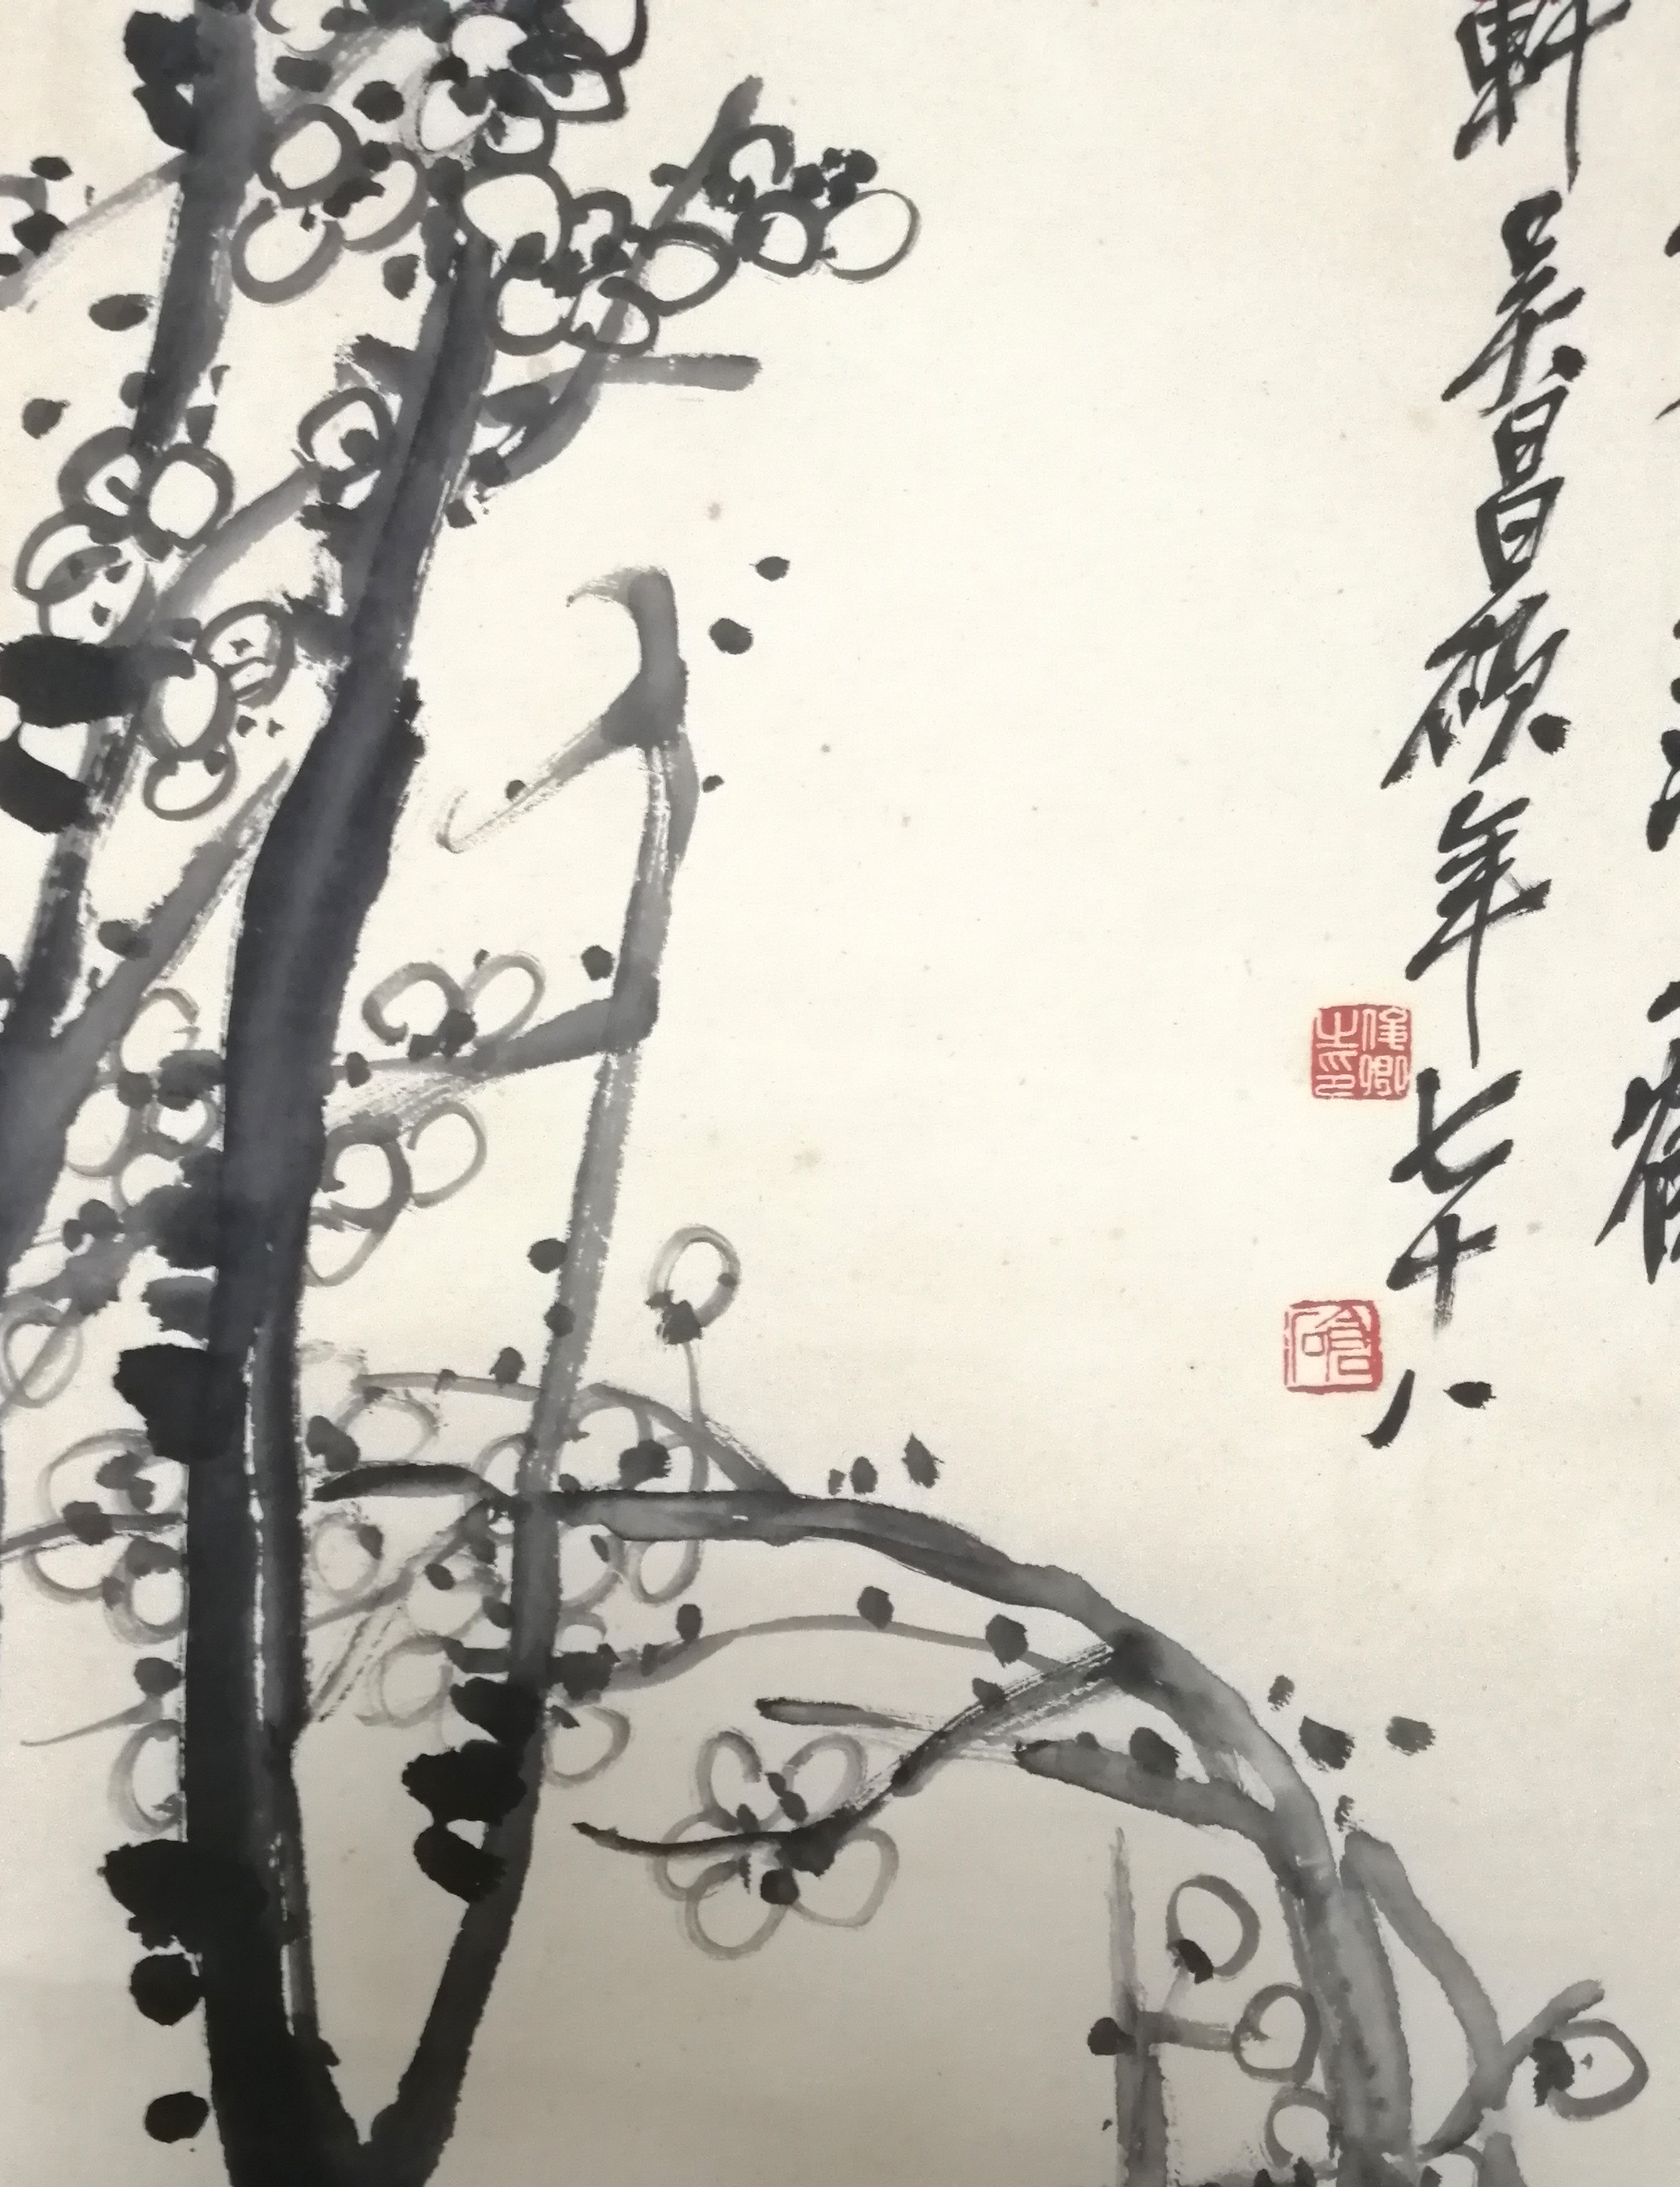 軒吳昌碩年七十八
俊卿之印
倉石